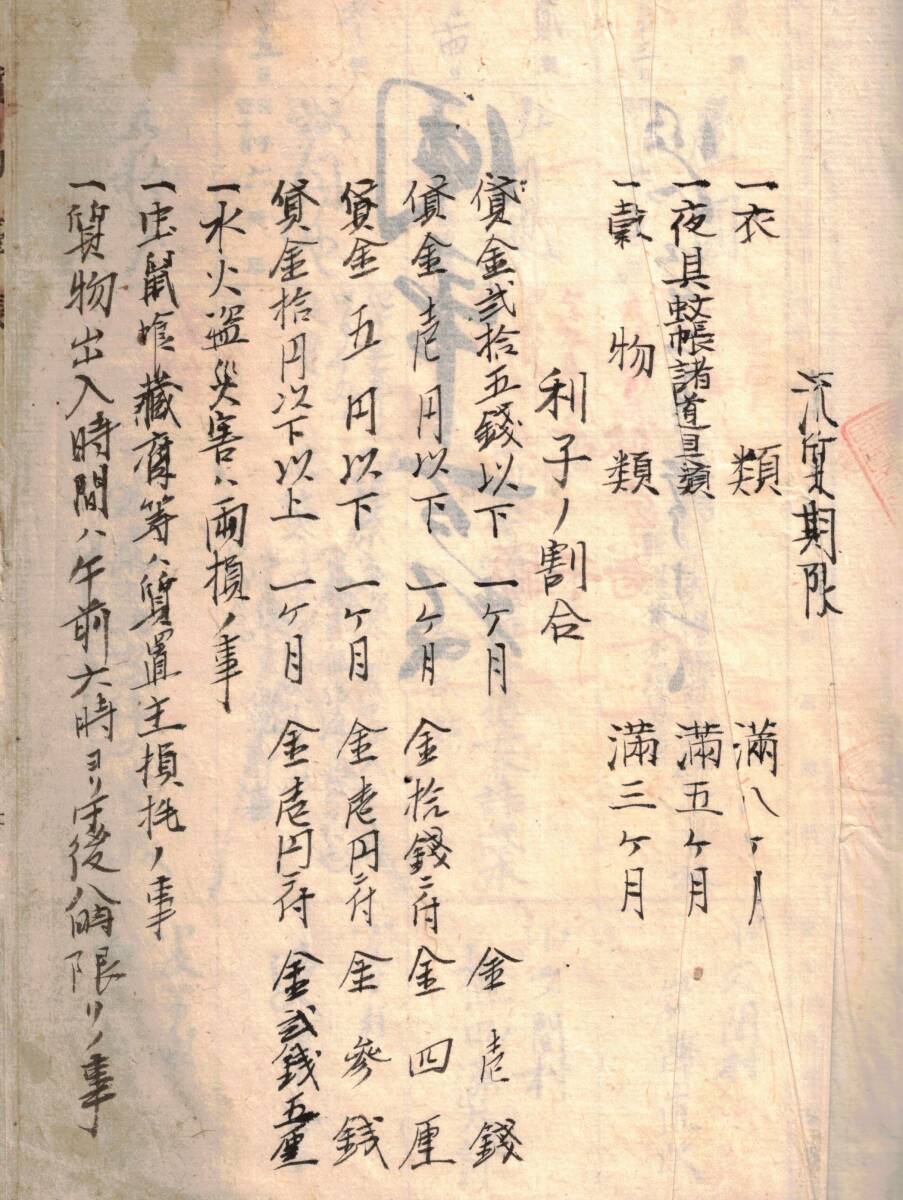 流質期限
一衣類 満八ヶ月
一夜具蚊帳諸道具類 満五ヶ月
一穀物類 満三ヶ月
利子ノ割合
貸金弐拾五錢以下 一ヶ月 金壱錢
貸金壱円以下 一ヶ月 金拾錢ニ付 金四厘
貸金五円以下 一ヶ月 金壱円ニ付 金参錢
貸金拾円以下以上 一ヶ月 金壱円ニ付 金弐錢五厘
一水火盗災害ハ両損ノ事
一虫鼠喰藏腐等ハ質置主損耗ノ事
一質物出入時間ハ午前六時ヨリ午後八時限リノ事